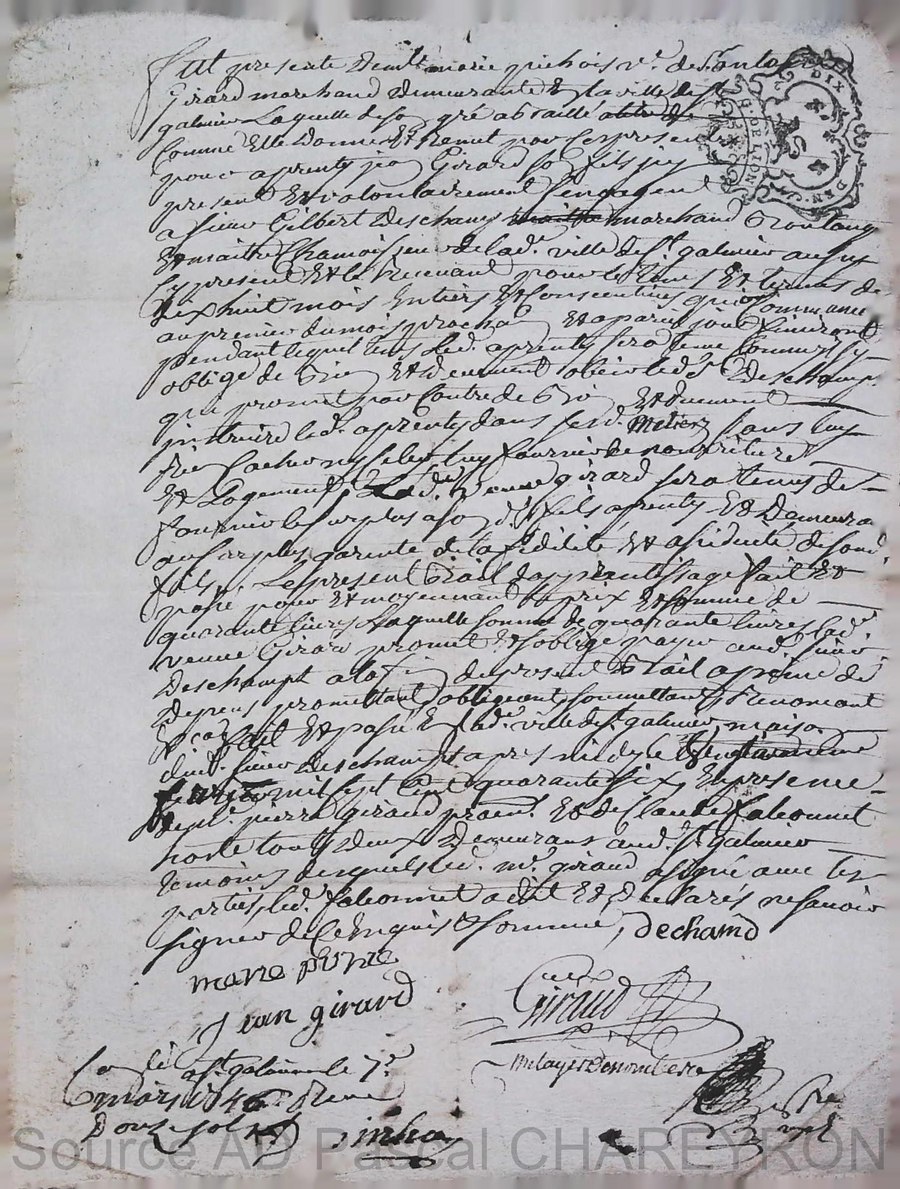 Fut presente Demlle marie pichois ve. de
Girard marchand Demeurante En la ville de St
galmier Laquelle de son gré a baillé
Comme Elle Donne Et Remet par Ces presentes
pour aprenty Girard son fils jcy
present Et volontairement S'engageant
a sieur Gilbert Deschamp marchand
Et maitre Chamoiseur de lad. ville de St. galmier aussy
Cy present Et le Recevant pour le tems Et termes de
dix huit mois Entiers Et Consecutives qui Commance
au premier du mois prochain Et a pareil jour finiront
pendant lequel tems led. aprenty sera tenu Comme jl sy
oblige de bien Et deuement obeir led. sr Deschamp
qui promet par Contre de bien Et deuement
jnstruire led. aprenty dans sesd. metiers sans luy
Rien Cacher ny Celer luy fournir de nourriture
Et Logement, Lad. veuve girard sera tenue de
fournir le surplus a son d. fils aprenty Et Demeura
au surplus garente de la fidelité Et asiduité de sond.
fils. Le present bail d'apprentissage fait Et
passé pour Et moyennant le prix Et somme de
quarante livres Laquelle somme de quarante livres lad.
veuve Girard promet Et s'oblige payer aud. sieur
Deschampt a la fin du present bail a peine de
depens promettant obligeant soumettant Renonceant
Fait Et passé En lad. ville de St. galmier, maison
dud. sieur Deschampt apres midy le
mil sept Cent quarante six, En presence
de pierre giraud Et de Claude faleonnet
hoste touts deux Demeurans aud. St galmier
temoins desquels led. mr. giraud a signé avec les
parties, led. faleonnet a dit Et declarés ne savoir
signer de Ce Enquis Et sommé, dechamd
marie
Jean girard
Giraud
a St. galmier le 7e
mars 1746
Douze sols
DIX DEN.
G. DE LION
Source AD Pascal CHAREYRON